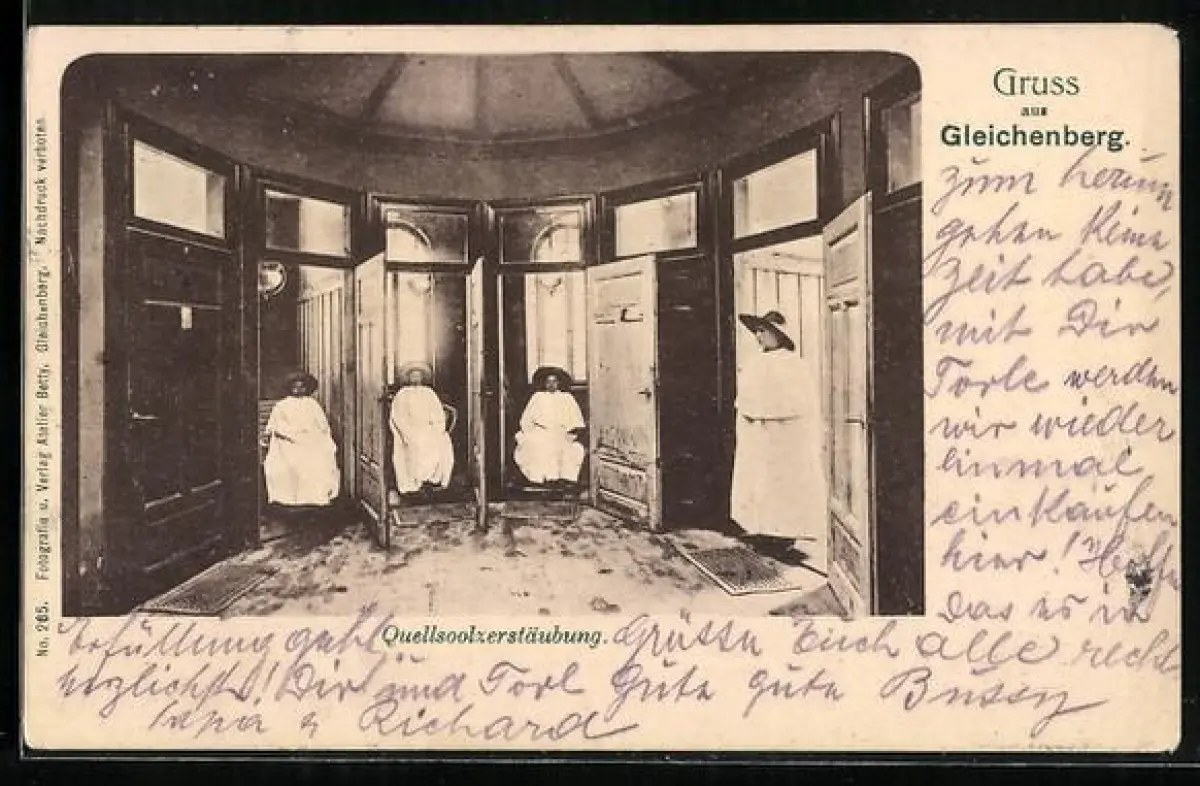 Gruss
aus
Gleichenberg.
zum herum
gehen keine
Zeit habe,
mit Dir
Torle werden
wir wieder
einmal
einkaufen
hier! Hoffe
Das es in
Erfüllung geht
Quellsoolzerstäubung.
Grüsse Euch alle recht
herzlichst! Dir und Torl Gute gute Bussy
Papa & Richard
No. 265. Fotografie u. Verlag Atelier Betty, Gleichenberg. Nachdruck verboten.